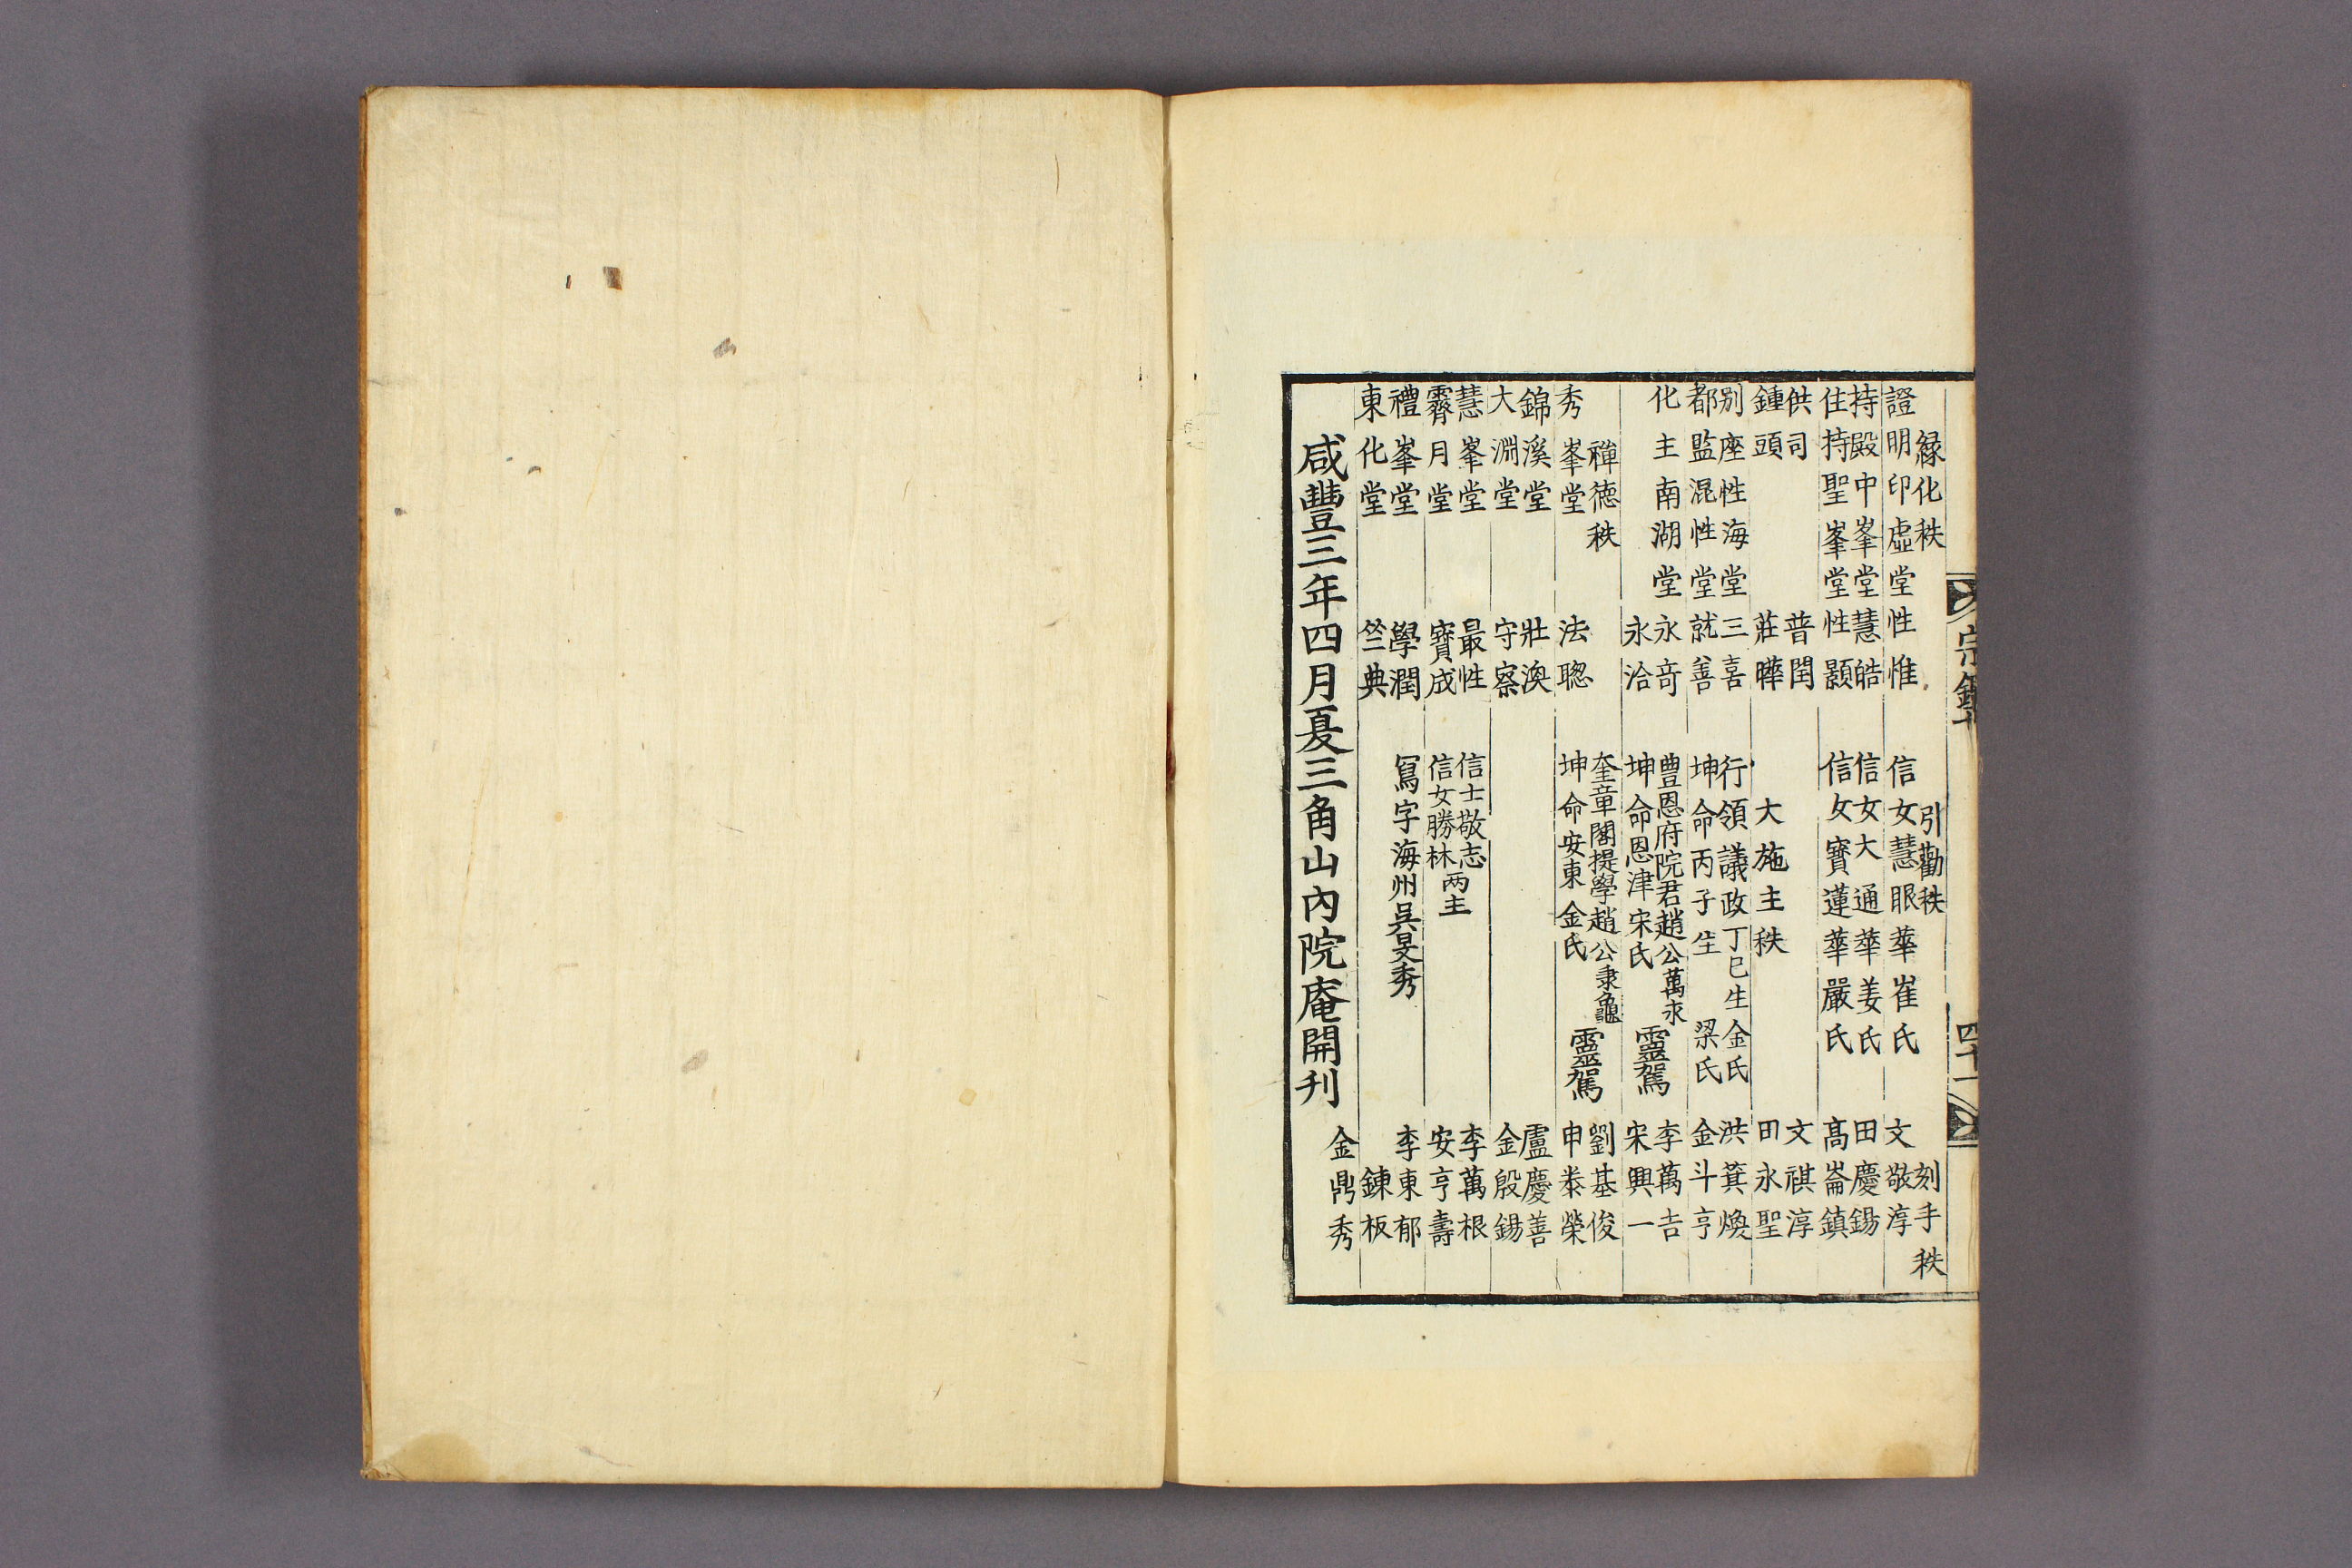 宗鏡 四十一
緣化秩 引勸秩 刻手秩
證明印虛堂性惟 信女慧眼華崔氏 文敬淳
持殿中峯堂慧皓 信女大通華姜氏 田慶錫
住持聖峯堂性顥 信女寶蓮華嚴氏 高崙鎮
供司 普閏 文祺淳
鍾頭 莊曄 大施主秩 田永聖
別座性海堂三喜 行領議政丁巳生金氏 洪箕煥
都監混性堂就善 坤命丙子生梁氏 金斗亨
化主南湖堂永奇 豊恩府院君趙公萬永 李萬吉
永洽 坤命恩津宋氏 靈駕 宋興一
禪德秩 奎章閣提學趙公秉龜 劉基俊
秀峯堂法聰 坤命安東金氏 靈駕 申泰榮
錦溪堂壯渙 盧慶善
大淵堂守察 金殷錫
慧峯堂最性 信士敬志 李萬根
霽月堂寶成 信女勝林 两主 安亨壽
禮峯堂學潤 寫字海州吳旻秀 李東郁
東化堂竺典 鍊板
金鼎秀
咸豐三年四月夏三角山內院庵開刊